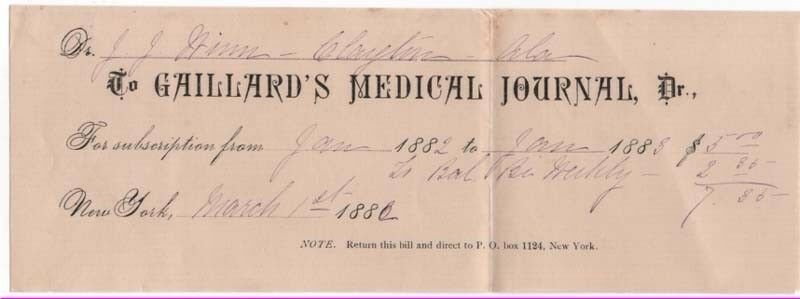 Dr. J. J. Winn - Clayton - Ala
To GAILLARD'S MEDICAL JOURNAL, Dr.,
For subscription from Jan 1882 to Jan 1883 $ 5 00
To Bal. Bi Weekly - 2 85
7. 85
New York, March 1st 1882
NOTE. Return this bill and direct to P. O. box 1124, New York.